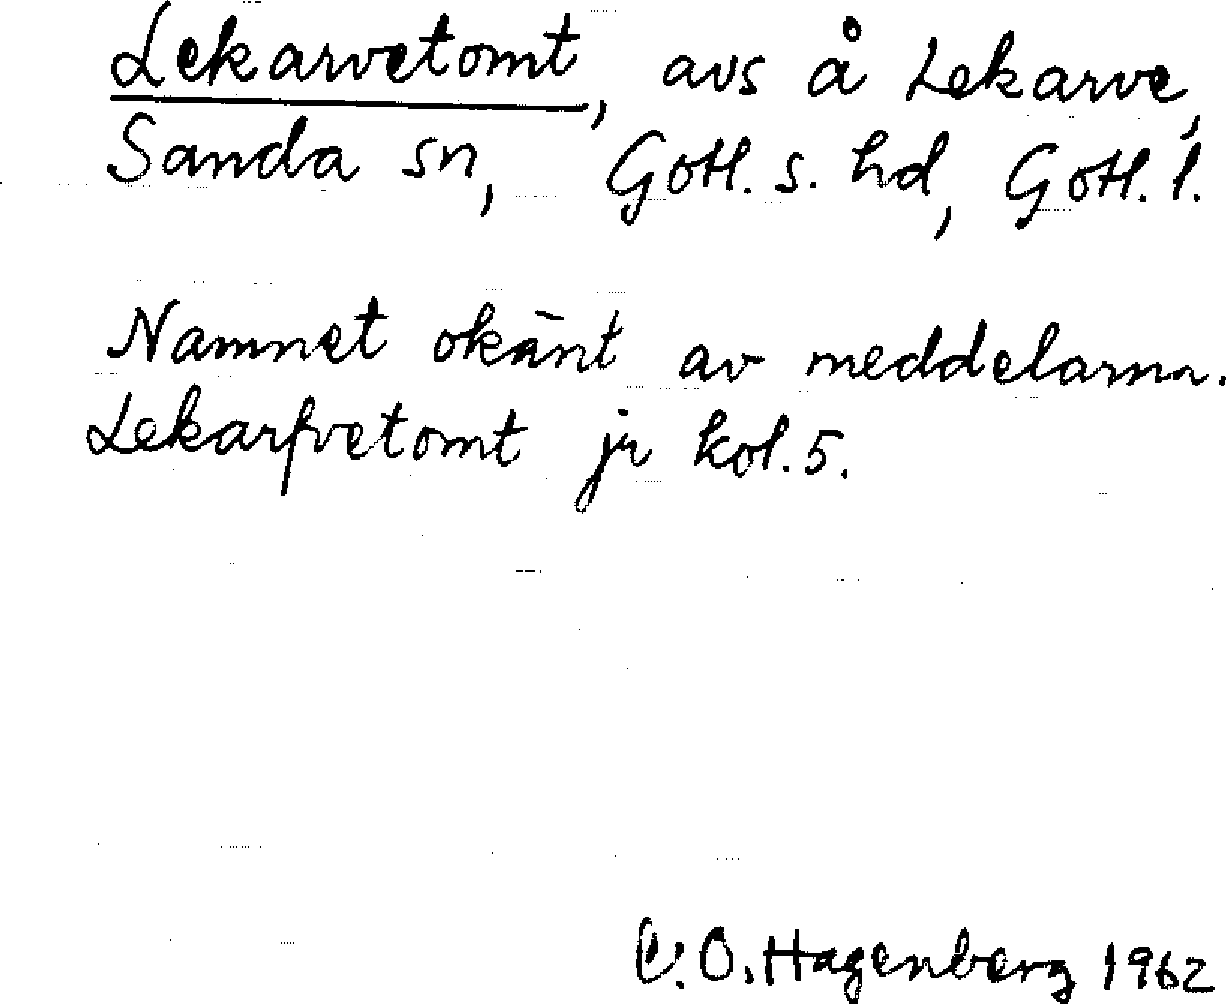 Lekarvetomt, avs å Lekarve,
Sanda sn, Gotl. s. hd, Gotl. l.
Namnet okänt av meddelarna.
Lekarfvetomt jr kol. 5.
O. Hagenberg 1962